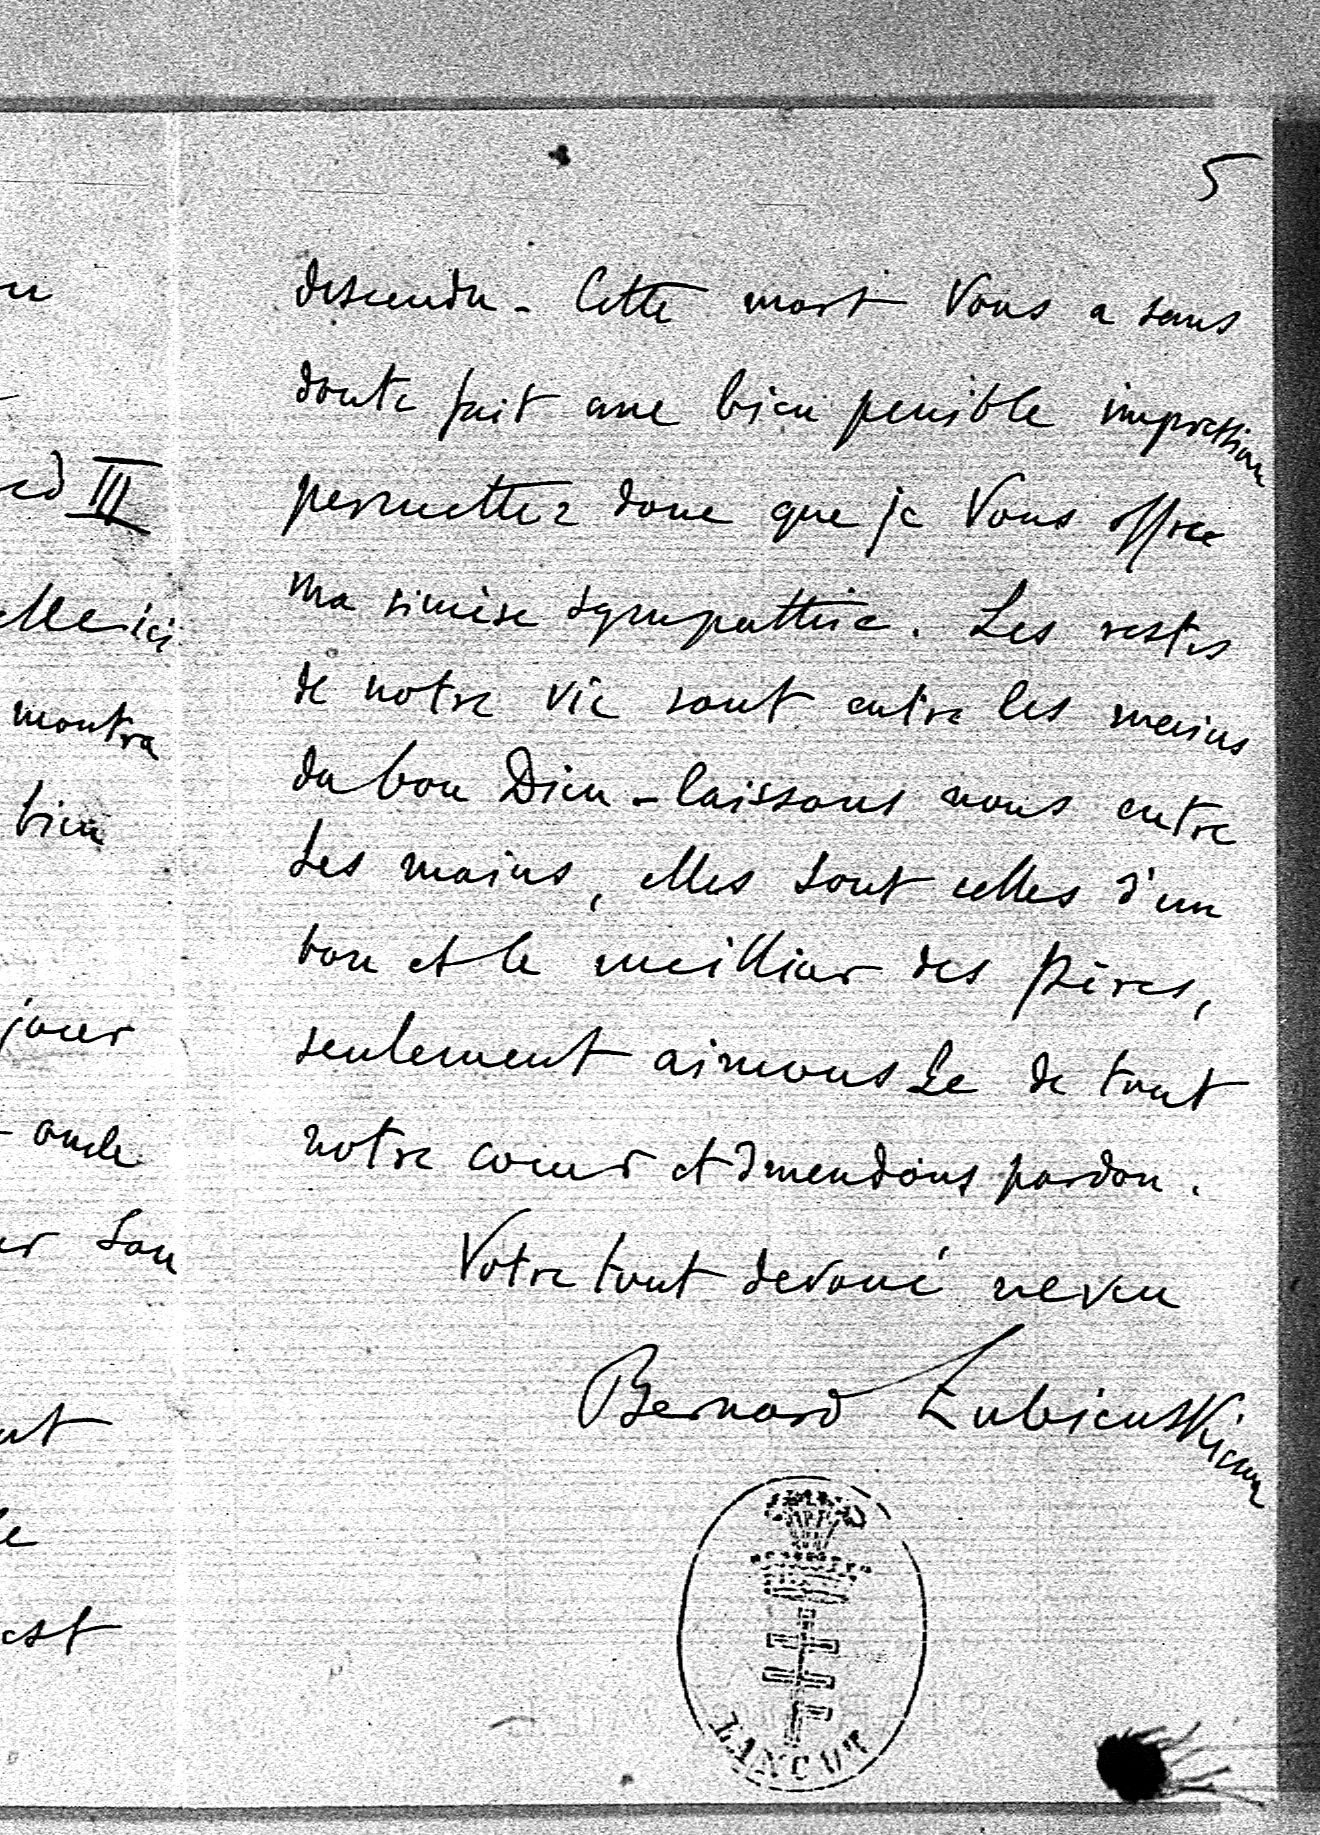 5
descendu - Cette mort Vous a sans
doute fait une bien penible impression
permettez donc que je Vous offre
ma sincère sympathie. Les restes
de notre vie sont entre les mains
du bon Dieu - laissons nous entre
Ses mains, elles sont celles d'un
bon et le meilliur des Pères,
seulement aimons Le de tout
notre cœur et dmendons pardon.
Votre tout devoué neveu
Bernard Lubiens
LANCUT
III
ici
montra
bien
jour
oncle
Son
est